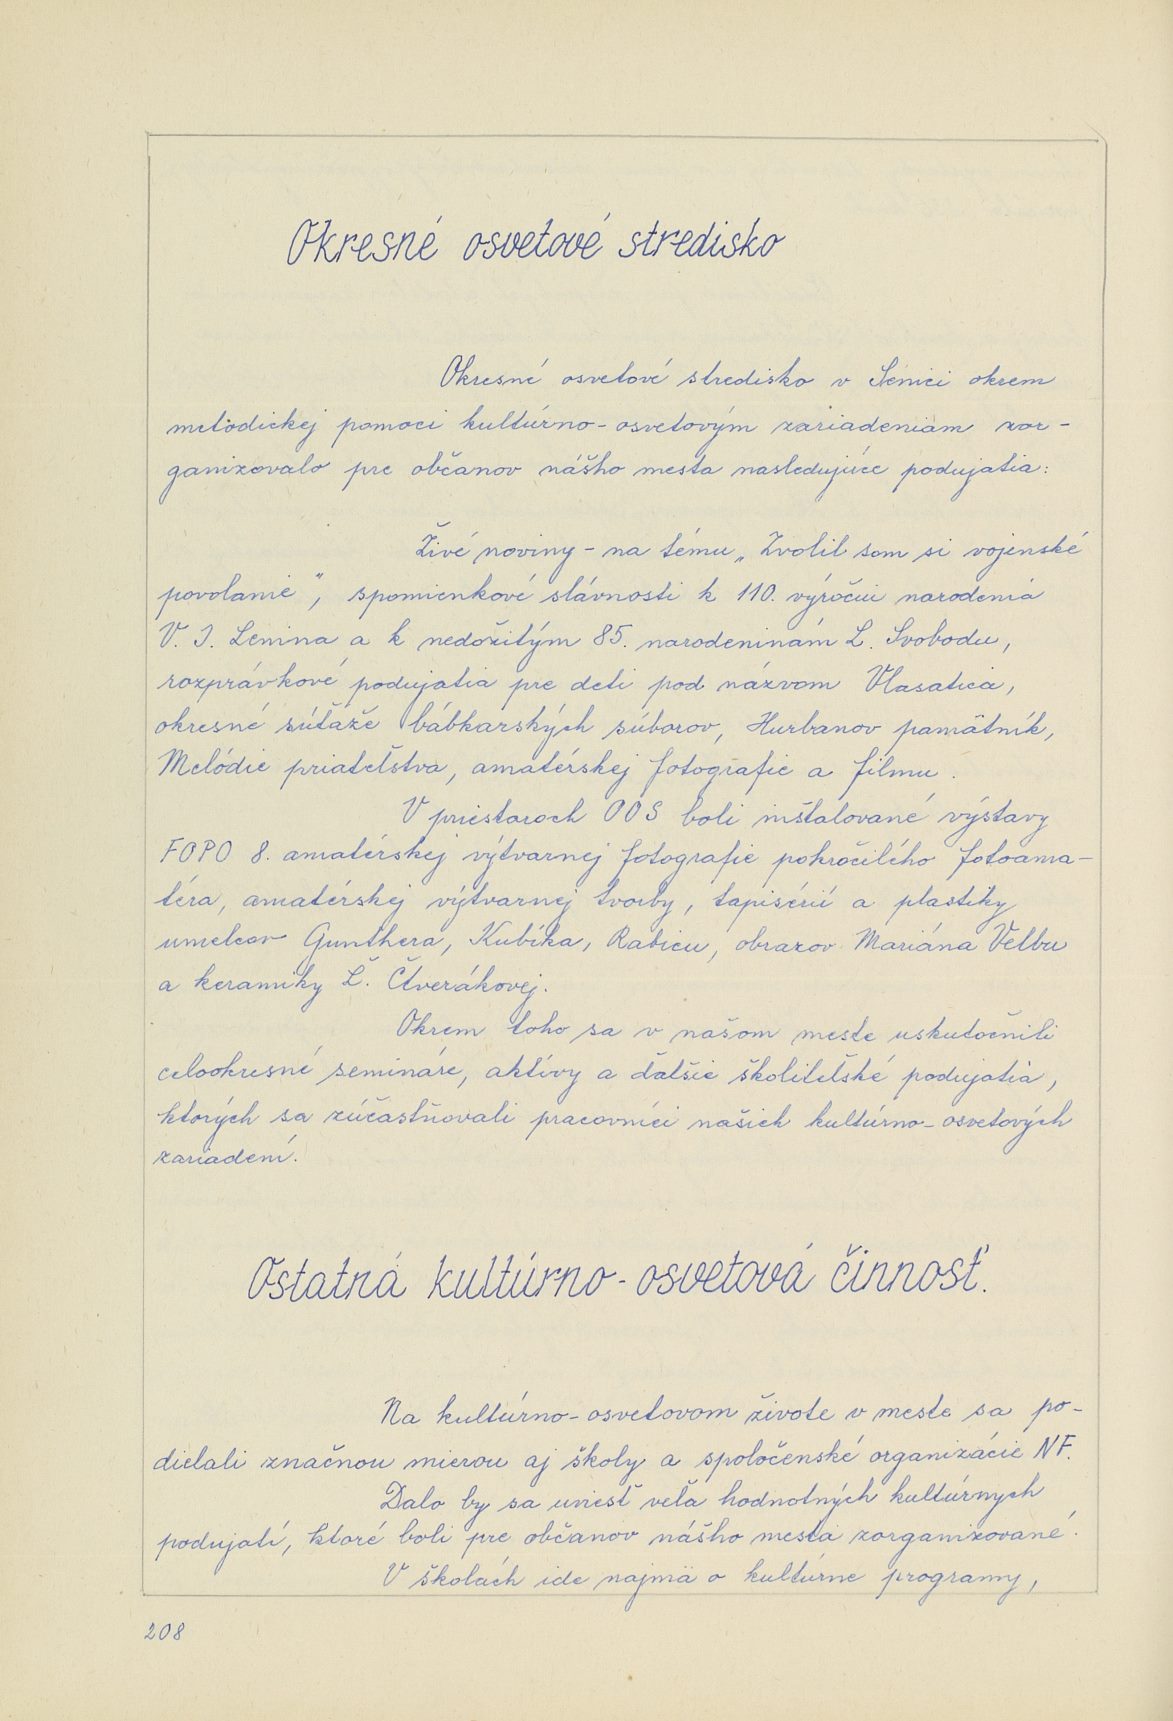 Okresné osvetové stredisko
Okresné osvetové stredisko v Senici okrem
metodickej pomoci kultúrno-osvetovým zariadeniam zor-
ganizovalo pre občanov nášho mesta nasledujúce podujatia:
Živé noviny - na tému „Zvolil som si vojenské
povolanie", spomienkové slávnosti k 110. výročiu narodenia
V. I. Lenina a k nedožitým 85. narodeninám L. Svobodu,
rozprávkové podujatia pre deti pod názvom Vlasatica,
okresné súťaže bábkarských súborov, Hurbanov pamätník,
Melódie priateľstva, amatérskej fotografie a filmu.
V priestoroch OOS boli inštalované výstavy
FOPO 8. amatérskej výtvarnej fotografie pokročilého fotoama-
téra, amatérskej výtvarnej tvorby, tapisérií a plastiky
umelcov Gunthera, Kubíka, Rabicu, obrazov Mariána Velbu
a keramiky Ľ. Čtverákovej.
Okrem toho sa v našom meste uskutočnili
celookresné semináre, aktívy a ďalšie školiteľské podujatia,
ktorých sa zúčastňovali pracovníci našich kultúrno-osvetových
zariadení.
Ostatná kultúrno-osvetová činnosť.
Na kultúrno-osvetovom živote v meste sa po-
dielali značnou mierou aj školy a spoločenské organizácie NF.
Dalo by sa uviesť veľa hodnotných kultúrnych
podujatí, ktoré boli pre občanov nášho mesta zorganizované.
V školách ide najmä o kultúrne programy,
208